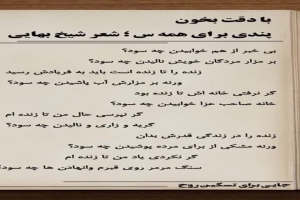 با دقت بخون
پندی برای همه س ؛ شعر شیخ بهایی
بی خبر از هم خوابیدن چه سود؟
بر مزار مردگان خویش نالیدن چه سود؟
زنده را تا زنده است باید به فریادش رسید
ورنه بر مزارش آب پاشیدن چه سود؟
گر نرفتی خانه اش تا زنده بود
خانه صاحب عزا خوابیدن چه سود؟
گر نپرسی حال من تا زنده ام
گریه و زاری و نالیدن چه سود؟
زنده را در زندگی قدرش بدان
ورنه مشکی از برای مرده پوشیدن چه سود؟
گر نکردی یاد من تا زنده ام
سنگ مرمر روی قبرم وانهادن ها چه سود؟
جایی برای تسکین روح